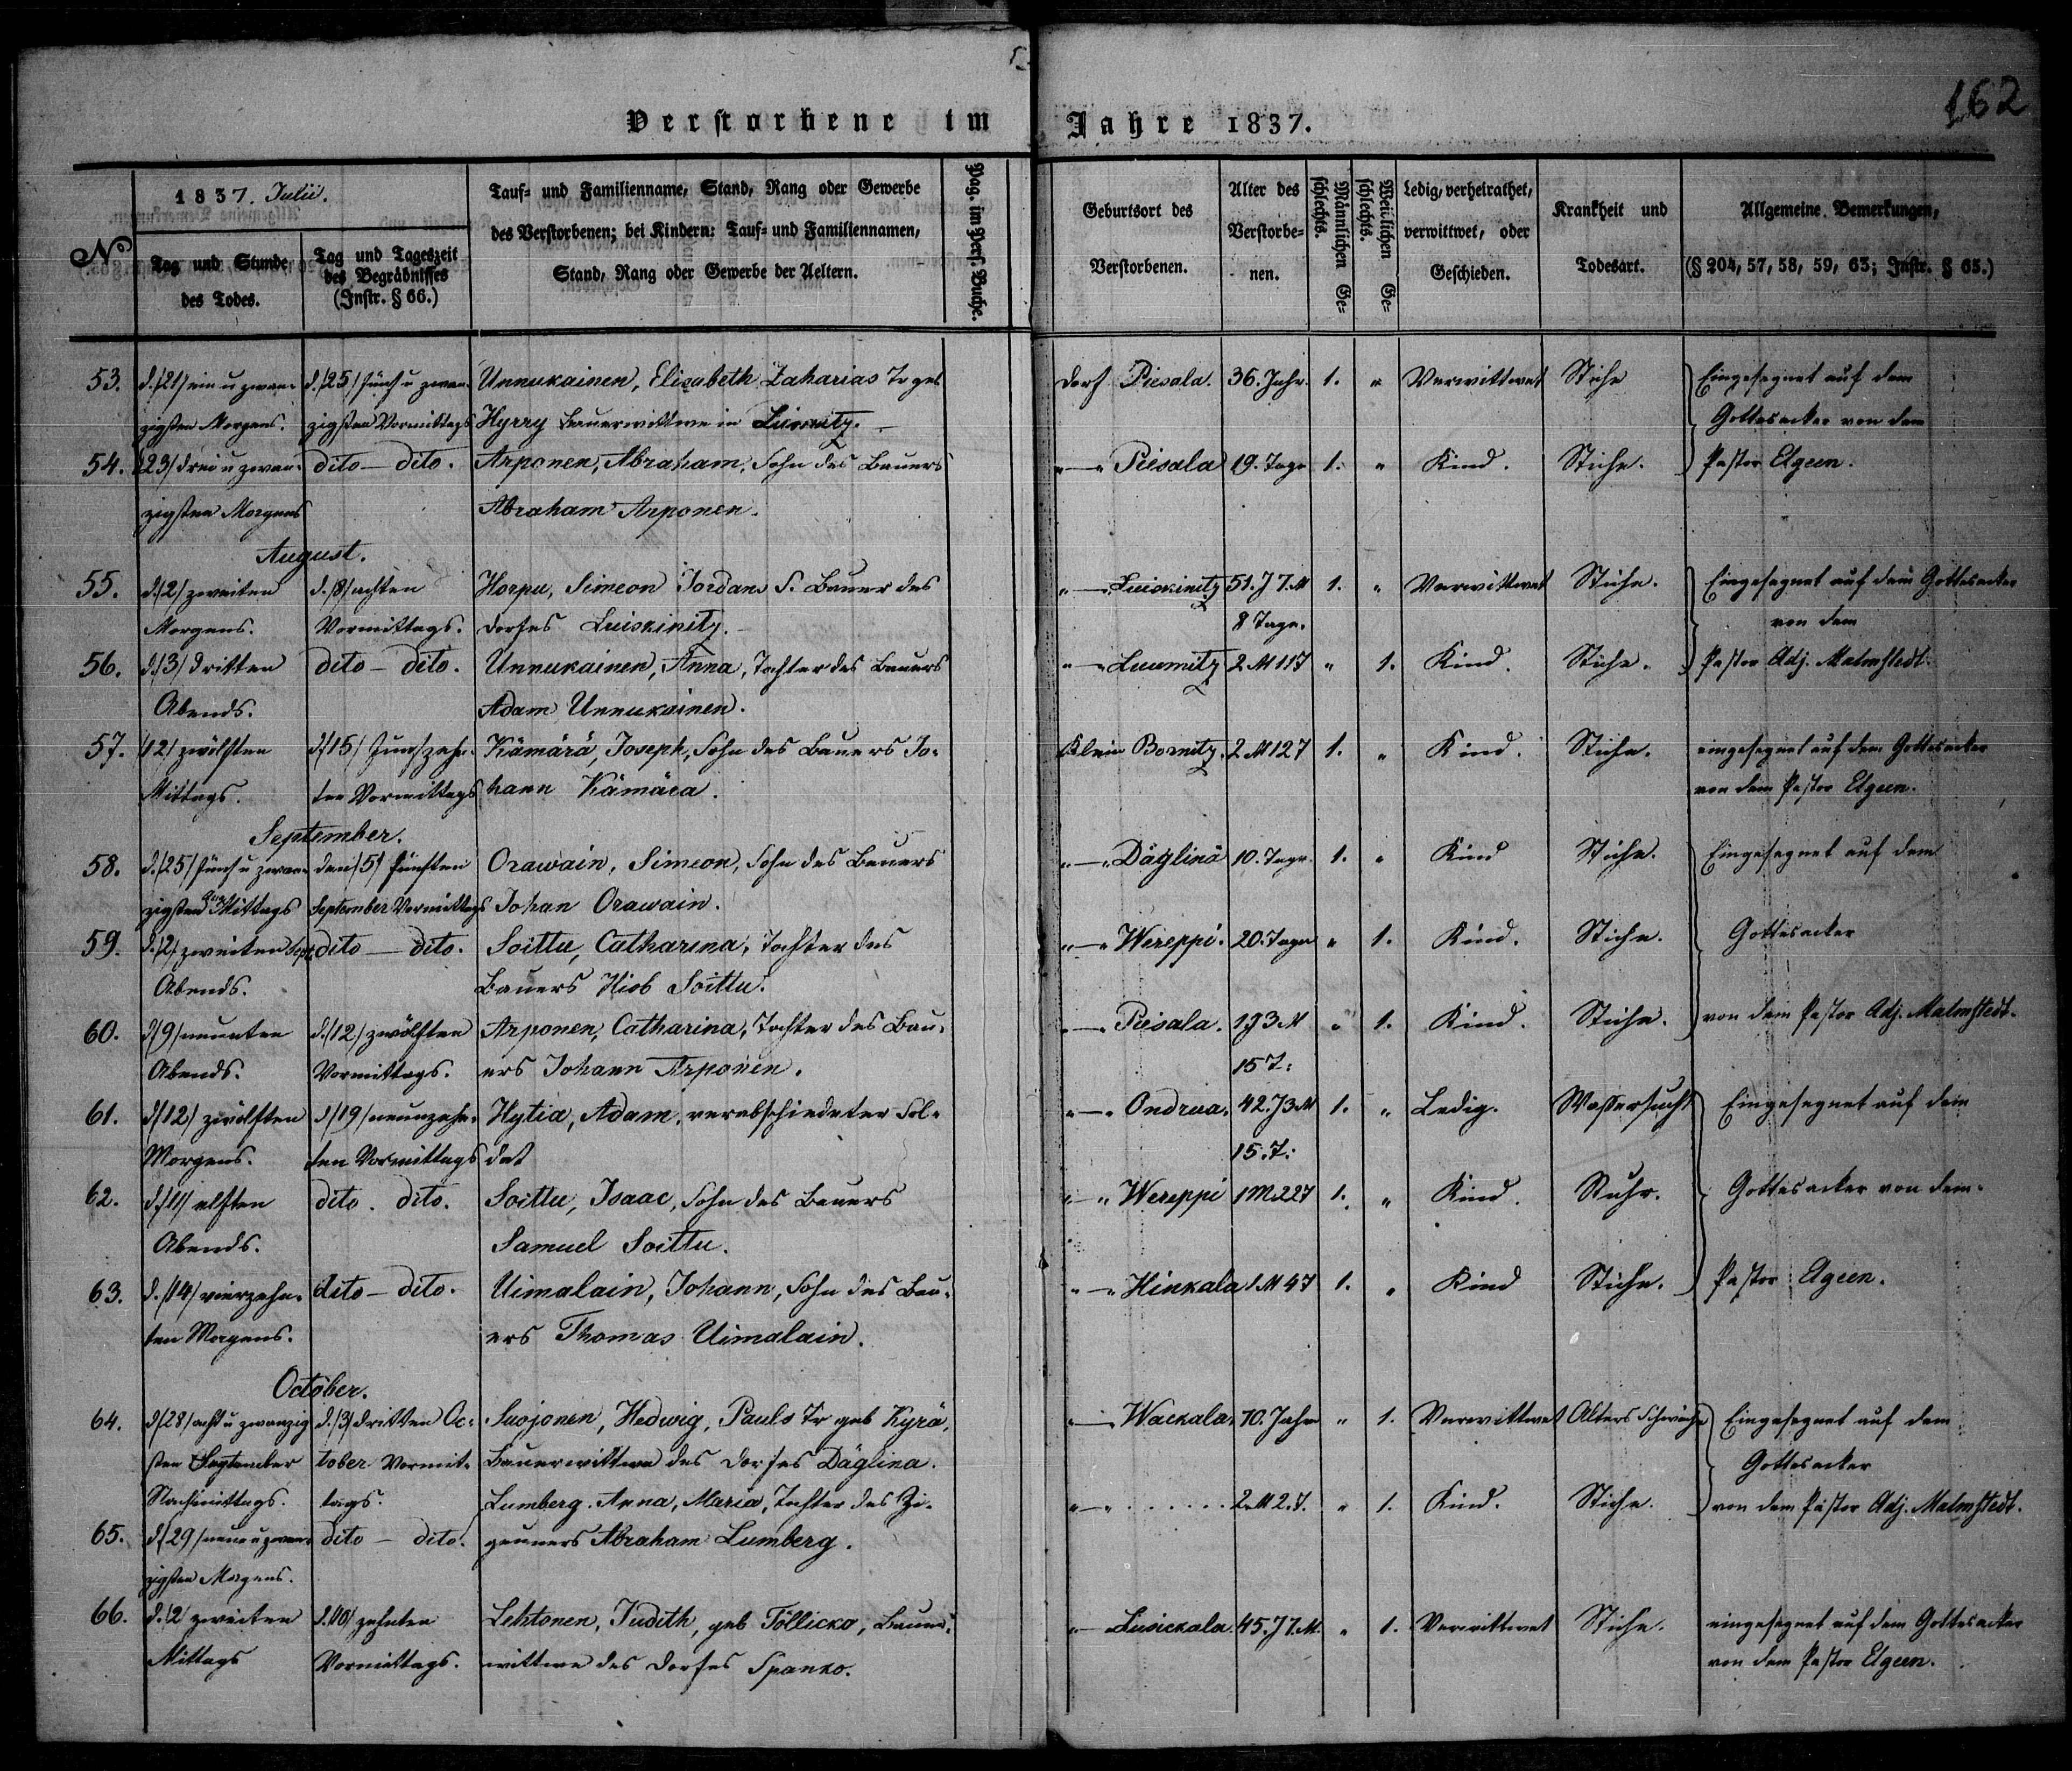 162
Verstorbene im Jahre 1837.
No
1837. Julii.
Tag und Stunde des Todes.
Tag und Tageszeit des Begräbnisses (Instr. § 66.)
Tauf- und Familienname, Stand, Rang oder Gewerbe
des Verstorbenen; bei Kindern: Tauf- und Familiennamen,
Stand, Rang oder Gewerbe der Aeltern.
Pag. im Pers. Buche.
Geburtsort des Verstorbenen.
Alter des Verstorbenen.
Männlichen Geschlechts.
Weiblichen Geschlechts.
Ledig, verheirathet, verwittwet, oder Geschieden.
Krankheit und Todesart.
Allgemeine Bemerkungen,
(§ 204, 57, 58, 59, 63; Instr. § 65.)
53. d. /21/ ein u zwan- d. /25/ fünf u zwan- Unnukainen, Elisabeth Zaharias Tr geb Dorf Piesala. 36. Jahr. 1. " Verwittwet Stiche Eingesegnet auf dem
zigsten Morgens. zigsten Vormittags Hyrry Bauerwittwe in Gottesacker von dem
54. /23/ drei u zwan- dito - dito. Arponen, Abraham, Sohn des Bauers "—" Piesala 19. Tage 1. " Kind. Stiche. Pastor Elgeen.
zigsten Morgens Abraham Arponen.
August.
55. d. /2/ zweiten d. /8/ achten Horpu, Simeon Jordans S. Bauer des "—" Luiskinitz 51. J 7. M 1. " Verwittwet Stiche. Eingesegnet auf dem Gottesacker
Morgens. Vormittags. Dorfes Luiskinitz. 8 Tage. von dem
56. d. /3/ dritten dito - dito. Unnukainen, Anna, Tochter des Bauers "—" 2 M 11 T " 1. Kind. Stiche. Pastor Adj. Malmstedt.
Abends. Adam Unnukainen.
57. /12/ zwölften d /15/ Funfzehn- Kämärä, Joseph, Sohn des Bauers Jo- Klein Bornitz. 2 M 12 T 1. " Kind. Stiche. eingesegnet auf dem Gottesacker
Mittags. ten Vormittags hann Kämära. von dem Pastor Elgeen.
September.
58. d. /25/ fünf u zwan- den /5/ fünften Orawain, Simeon, Sohn des Bauers "—" Däglinä 10. Tage. 1. " Kind Stiche. Eingesegnet auf dem
zigsten Mittags September Vormittags Johan Orawain.
59. d. /2/ zweiten Sept. dito — dito. Soittu, Catharina, Tochter des "—" Wereppi. 20. Tage " 1. Kind. Stiche. Gottesacker
Abends. Bauers Hiob Soittu.
60. d /9/ neunten d. /12/ zwölften Arponen, Catharina, Tochter des Bau- "—" Piesala. 1 J 3 M " 1. Kind. Stiche. von dem Pastor Adj. Malmstedt.
Abends. Vormittags. ers Johann Arponen. 15 T.
61. d /12/ zwölften d /19/ neunzehn- Hytia, Adam, verabschiedeter Sol- "—" Ondrua. 42. J 3 M 1. " Ledig. Wassersucht Eingesegnet auf dem
Morgens. ten Vormittags dat 15. T.
62. d. /11/ elften dito. dito. Soittu, Isaac, Sohn des Bauers "—" Wereppi 1 M 22 T 1. " Kind. Ruhr. Gottesacker von dem
Abends. Samuel Soittu.
63. d. /14/ vierzehn- dito - dito. Uimalain, Johann, Sohn des Bau- "—" Hinkala 1 M 4 T 1. " Kind Stiche. Pastor Elgeen.
ten Morgens. ers Thomas Uimalain.
October.
64. d /28/ acht u zwanzig d. /3/ dritten Oc- Suojonen, Hedwig, Pauls Tr geb Kyrä, "—" Wackala 70. Jahr " 1. Verwittwet Alters Schwäche Eingesegnet auf dem
sten September tober Vormit- Bauerwittwe des Dorfes Däglina. Gottesacker
Nachmittags. tags. Lumberg. Anna, Maria, Tochter des Zi- "—" ...... 2 M 2. T. " 1. Kind. Stiche. von dem Pastor Adj. Malmstedt.
65. d /29/ neun u zwan- dito - dito. geuners Abraham Lumberg.
zigsten Morgens.
66. d. /2/ zweiten d. /10/ zehnten Lehtonen, Judith, geb Töllicko, Bauer- "—" Liusickala 45. J 7. M. " 1. Verwittwet Stiche. eingesegnet auf dem Gottesacker
Mittags Vormittags. wittwe des Dorfes Spanko. von dem Pastor Elgeen.